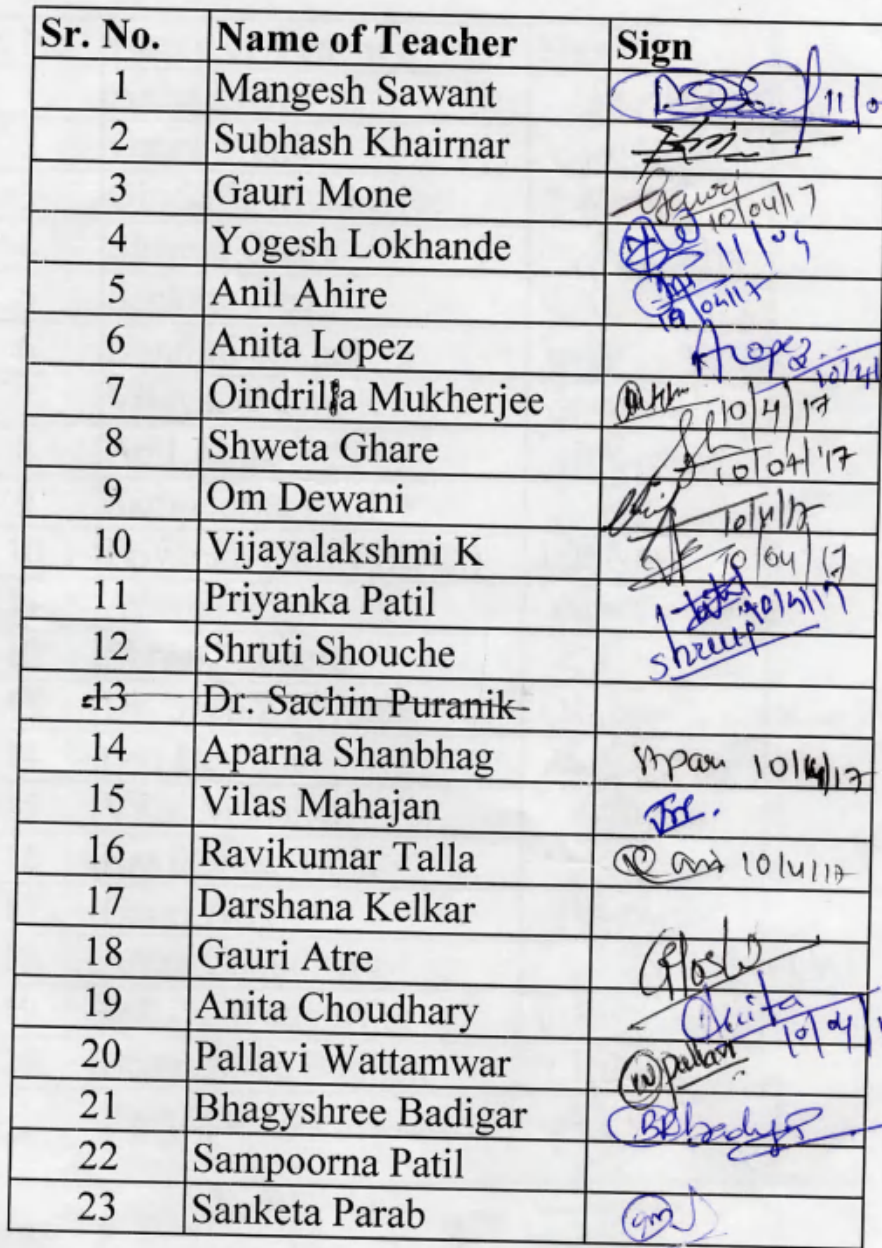 Sr. No. Name of Teacher Sign
1 Mangesh Sawant 11/0
2 Subhash Khairnar
3 Gauri Mone Gauri 10/04/17
4 Yogesh Lokhande 11/04
5 Anil Ahire 10/04/17
6 Anita Lopez ALopez 10/4/
7 Oindrilla Mukherjee 10/4/17
8 Shweta Ghare 10/04/17
9 Om Dewani 10/4/17
10 Vijayalakshmi K 10/04/17
11 Priyanka Patil 10/4/17
12 Shruti Shouche Shruti
13 Dr. Sachin Puranik
14 Aparna Shanbhag Apar 10/4/17
15 Vilas Mahajan
16 Ravikumar Talla Ravi 10/4/17
17 Darshana Kelkar
18 Gauri Atre
19 Anita Choudhary Anita 10/04/1
20 Pallavi Wattamwar Pallavi
21 Bhagyshree Badigar
22 Sampoorna Patil
23 Sanketa Parab